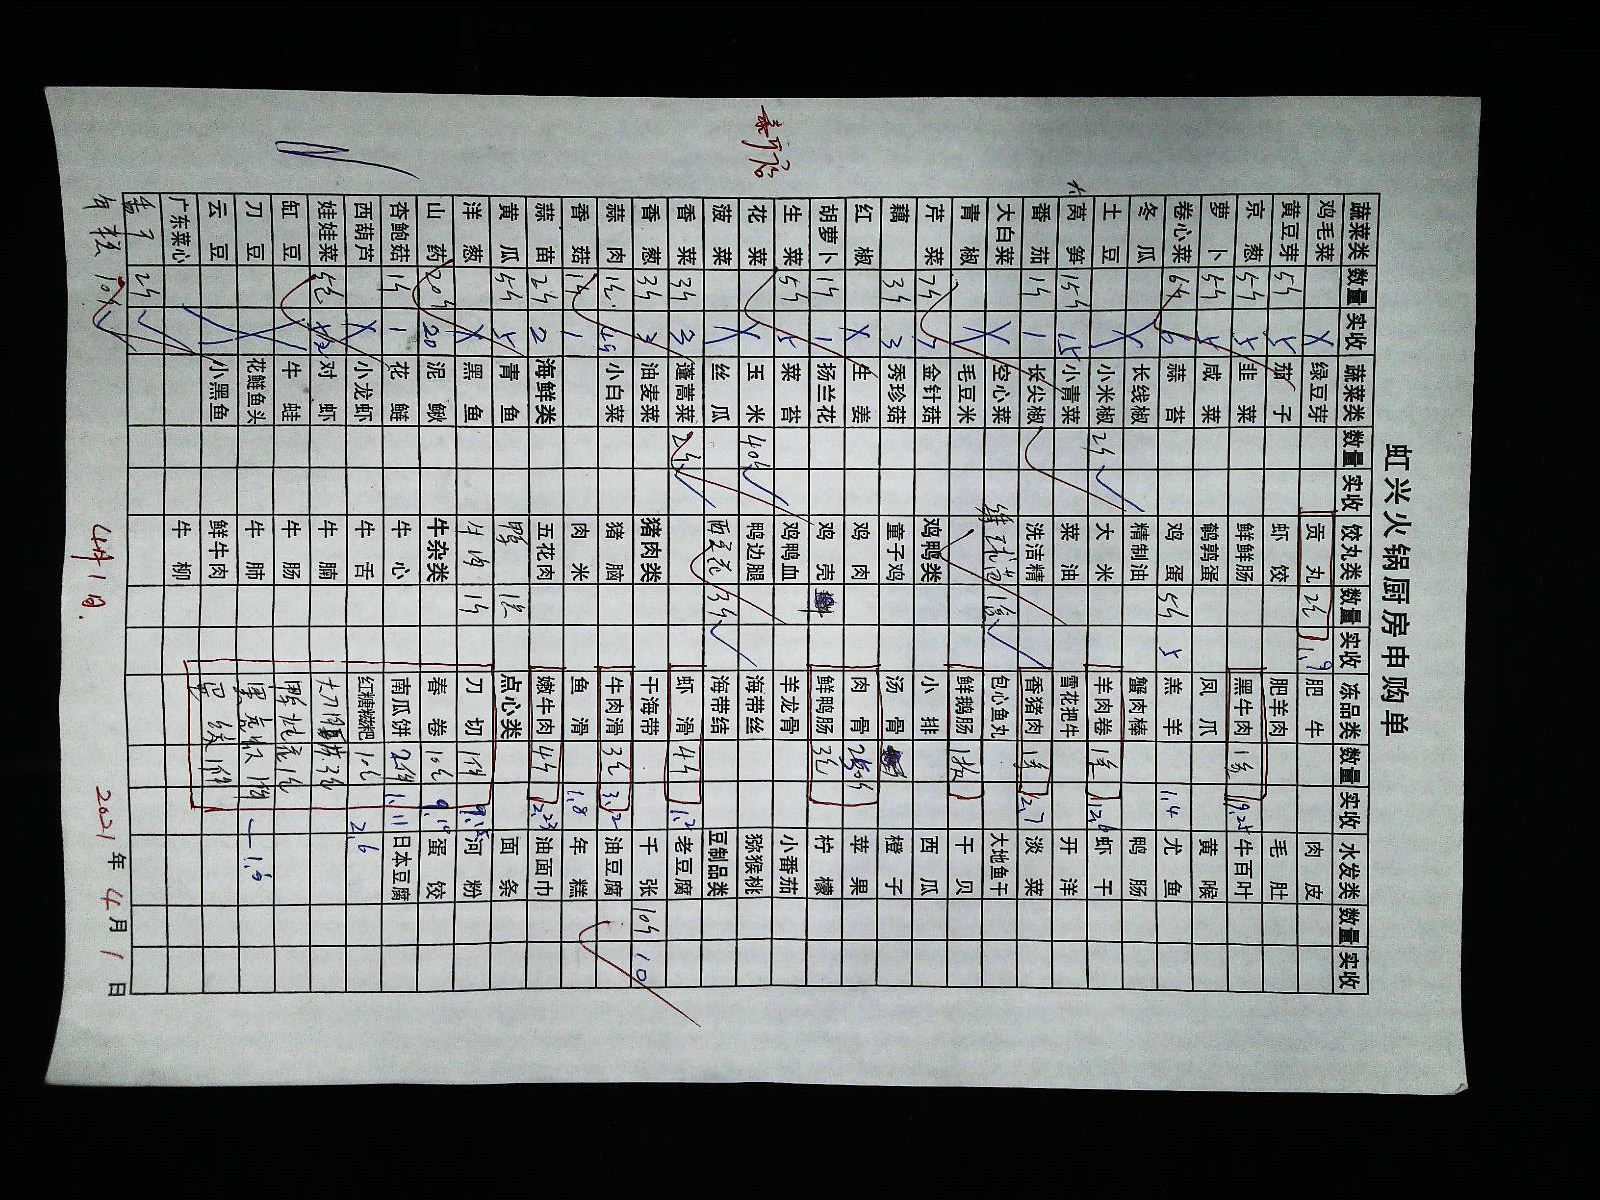 虹兴火锅厨房申购单
蔬菜类 数量 实收 蔬菜类 数量 实收 饺丸类 数量 实收 冻品类 数量 实收 水发类 数量 实收
鸡毛菜 绿豆芽 贡丸 1.9 肥牛 肉皮
黄豆芽 5斤 5 茄子 虾饺 肥羊肉 毛肚
京葱 5斤 5 韭菜 鲜鲜肠 黑牛肉 19.25 牛百叶
萝卜 5斤 5 咸菜 鹌鹑蛋 凤爪 黄喉
卷心菜 6斤 6 蒜苔 鸡蛋 5斤 5 羔羊 1.4 尤鱼
冬瓜 长线椒 精制油 蟹肉棒 鸭肠
土豆 小米椒 2斤 大米 羊肉卷 12.6 虾干
莴笋 15斤 15 小青菜 菜油 雪花把牛 开洋
番茄 1斤 1 长尖椒 洗洁精 香猪肉 12.7 淡菜
大白菜 空心菜 包心鱼丸 大地鱼干
青椒 毛豆米 鲜鹅肠 干贝
芹菜 7斤 7 金针菇 鸡鸭类 小排 西瓜
藕 3斤 3 秀珍菇 童子鸡 汤骨 橙子
红椒 生姜 鸡肉 肉骨 苹果
胡萝卜 1斤 1 杨兰花 鸡壳 鲜鸭肠 3包 柠檬
生菜 5斤 5 菜苔 鸡鸭血 羊龙骨 小番茄
花菜 玉米 40斤 鸭边腿 海带丝 猕猴桃
菠菜 丝瓜 西兰花 3斤 海带结 豆制品类
香菜 3斤 3 蓬蒿菜 2斤 虾滑 4斤 老豆腐
香葱 3斤 3 油麦菜 猪肉类 干海带 千张 10斤 10
蒜肉 小白菜 猪脑 牛肉滑 3包 3.12 油豆腐
香菇 1斤 1 肉米 鱼滑 1.8 年糕
蒜苗 2斤 2 海鲜类 五花肉 嫩牛肉 4斤 12.23 油面巾
黄瓜 5斤 5 青鱼 点心类 面条
洋葱 黑鱼 牛肉 1斤 刀切 1件 河粉
山药 20斤 20 泥鳅 牛杂类 春卷 10包 蛋饺
杏鲍菇 1斤 1 花鲢 牛心 南瓜饼 1.11 日本豆腐
西葫芦 小龙虾 牛舌 红糖糍粑 10包 2.6
娃娃菜 5包 对虾 牛腩
缸豆 牛蛙 牛肠
刀豆 花鲢鱼头 牛肺
云豆 小黑鱼 鲜牛肉
广东菜心 牛柳
2斤
年糕 10斤
4月1日.
2021年4月1日